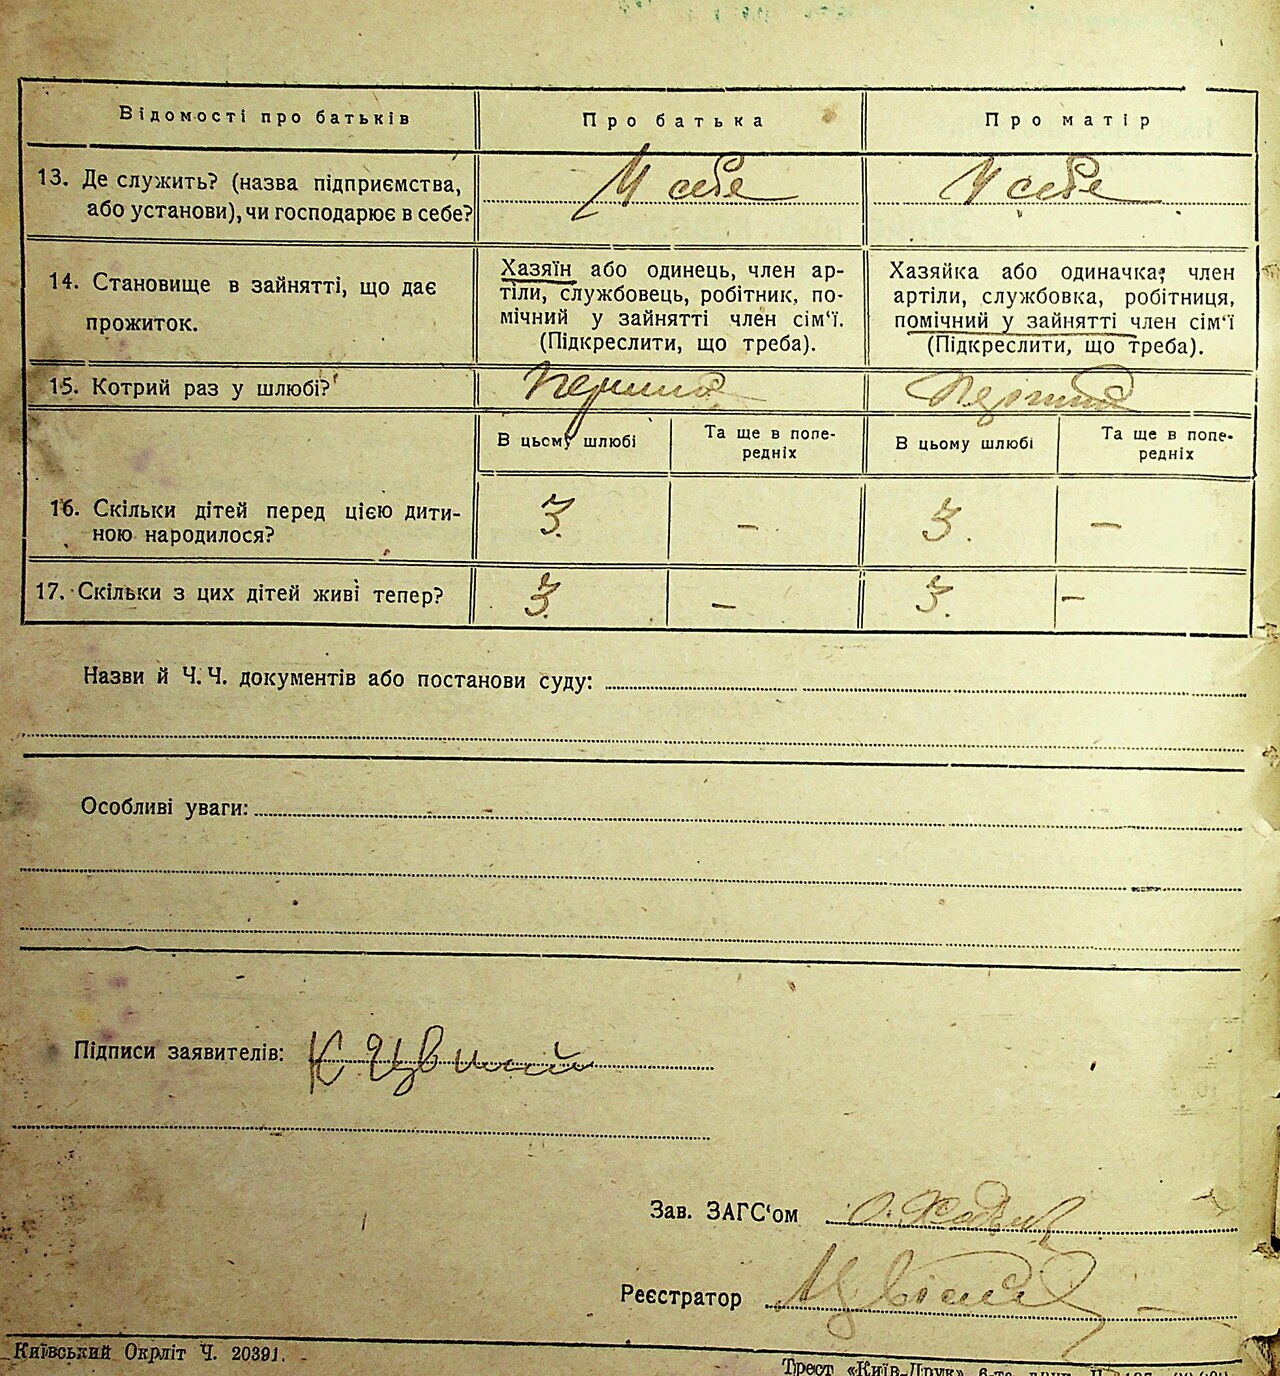 Відомості про батьків
Про батька
Про матір
13. Де служить? (назва підприємства,
або установи), чи господарює в себе?
У себе
У себе
14. Становище в зайнятті, що дає
прожиток.
Хазяїн або одинець, член ар-
тіли, службовець, робітник, по-
мічний у зайнятті член сім‘ї.
(Підкреслити, що треба).
Хазяйка або одиначка, член
артіли, службовка, робітниця,
помічний у зайнятті член сім‘ї
(Підкреслити, що треба).
15. Котрий раз у шлюбі?
Перший
Перший
В цьому шлюбі
Та ще в попе-
редніх
В цьому шлюбі
Та ще в попе-
редніх
16. Скільки дітей перед цією дити-
ною народилося?
3.
–
3.
–
17. Скільки з цих дітей живі тепер?
3.
–
3.
–
Назви й Ч.Ч. документів або постанови суду:
Особливі уваги:
Підписи заявителів:
Зав. ЗАГС‘ом
Реєстратор
Київський Окрліт Ч. 20391.
Трест «Київ-Друк»